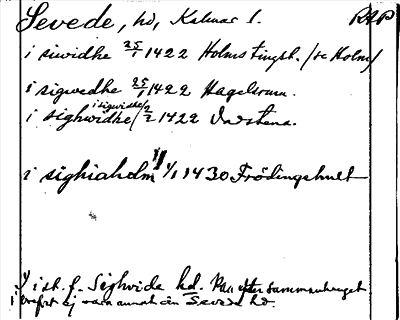 Sevede, hd, Kalmar l. RAP
i siwidhe 25/1 1422 Holms tingst. (se Holm)
i sigwedhe 25/1 1422 Hagelsrum.
i sigwidhe
i sighwidhe 2/2 1422 Vadstena.
i sighiahdm 1) 1/1 1430 Frödingshult
1) i st. f. Sighvide hd. Kan efter sammanhanget
ej vara annat än Sevede hd.